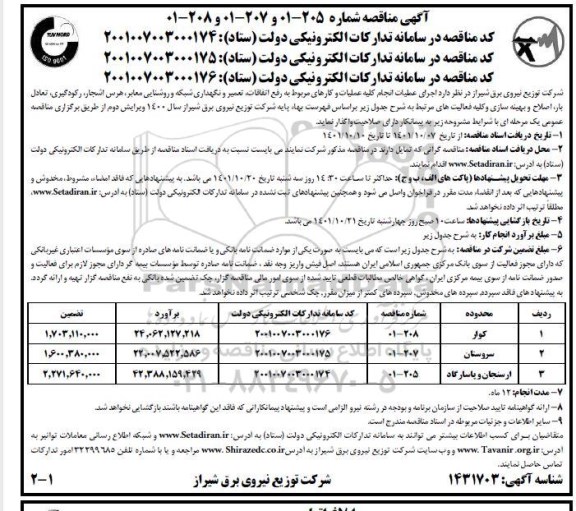 آگهی مناقصه شماره ۲۰۵-۰۱ و ۲۰۷-۰۱ و ۲۰۸-۰۱
کد مناقصه در سامانه تدارکات الکترونیکی دولت (ستاد): ۲۰۰۱۰۰۷۰۰۳۰۰۰۱۷۴
کد مناقصه در سامانه تدارکات الکترونیکی دولت (ستاد): ۲۰۰۱۰۰۷۰۰۳۰۰۰۱۷۵
کد مناقصه در سامانه تدارکات الکترونیکی دولت (ستاد): ۲۰۰۱۰۰۷۰۰۳۰۰۰۱۷۶
شرکت توزیع نیروی برق شیراز در نظر دارد اجرای عملیات انجام کلیه عملیات و کارهای مربوط به رفع اتفاقات، تعمیر و نگهداری شبکه و روشنایی معابر، هرس اشجار، رکوردگیری، تعادل
بار، اصلاح و بهینه سازی و کلیه فعالیت های مرتبط به شرح جدول زیر براساس فهرست بهاء پایه شرکت توزیع نیروی برق شیراز سال ۱۴۰۰ ویرایش دوم از طریق برگزاری مناقصه
عمومی یک مرحله ای با شرایط مشروحه زیر به پیمانکار دارای صلاحیت واگذار نماید.
۱- تاریخ دریافت اسناد مناقصه: از تاریخ ۱۴۰۱/۱۰/۰۷ تا تاریخ ۱۴۰۱/۱۰/۱۰
۲- محل دریافت اسناد مناقصه: مناقصه گرانی که تمایل دارند در مناقصه مذکور شرکت نمایند می بایست نسبت به دریافت اسناد مناقصه از طریق سامانه تدارکات الکترونیکی دولت
(ستاد) به آدرس: www.Setadiran.ir اقدام نمایند.
۳- مهلت تحویل پیشنهادها (پاکت های الف، ب و ج): حداکثر تا ساعت ۱۴:۳۰ روز سه شنبه تاریخ ۱۴۰۱/۱۰/۲۰ می باشد. به پیشنهادهایی که فاقد امضاء، مشروط، مخدوش و
پیشنهادهایی که بعد از انقضاء مدت مقرر در فراخوان واصل می شود و همچنین پیشنهادهای ثبت نشده در سامانه تدارکات الکترونیکی دولت (ستاد) به آدرس: www.Setadiran.ir،
مطلقاً ترتیب اثر داده نخواهد شد.
۴- تاریخ بازگشایی پیشنهادها: ساعت ۱۰ صبح روز چهارشنبه تاریخ ۱۴۰۱/۱۰/۲۱ می باشد.
۵- مبلغ برآورد انجام کار: به شرح جدول زیر
۶- مبلغ تضمین شرکت در مناقصه: به شرح جدول زیر است که می بایست به صورت یکی از موارد ضمانت نامه بانکی و یا ضمانت نامه های صادره از سوی مؤسسات اعتباری غیربانکی
که دارای مجوز فعالیت از سوی بانک مرکزی جمهوری اسلامی ایران هستند، اصل فیش واریز وجه نقد، ضمانت نامه صادره توسط مؤسسات بیمه گر دارای مجوز لازم برای فعالیت و
صدور ضمانت نامه از سوی بیمه مرکزی ایران، گواهی خالص مطالبات قطعی تایید شده از سوی امور مالی مناقصه گزار، چک تضمین شده بانکی به نفع مناقصه گزار تهیه و ارائه گردد.
به پیشنهاد های فاقد سپرده، سپرده های مخدوش، سپرده های کمتر از میزان مقرر، چک شخصی ترتیب اثر داده نخواهد شد.
ردیف محدوده شماره مناقصه کد سامانه تدارکات الکترونیکی دولت برآورد تضمین
۱ کوار ۲۰۸-۰۱ ۲۰۰۱۰۰۷۰۰۳۰۰۰۱۷۶ ۲۴,۰۶۲,۱۲۷,۲۱۸ ۱,۷۰۳,۱۱۰,۰۰۰
۲ سروستان ۲۰۷-۰۱ ۲۰۰۱۰۰۷۰۰۳۰۰۰۱۷۵ ۲۴,۰۰۷,۵۲۲,۵۸۶ ۱,۶۰۰,۳۸۰,۰۰۰
۳ ارسنجان و پاسارگاد ۲۰۵-۰۱ ۲۰۰۱۰۰۷۰۰۳۰۰۰۱۷۴ ۴۲,۳۸۸,۱۵۹,۴۲۹ ۲,۲۷۱,۶۴۰,۰۰۰
۷- مدت انجام: ۱۲ ماه.
۸- ارائه گواهینامه تایید صلاحیت از سازمان برنامه و بودجه در رشته نیرو الزامی است و پیشنهاد پیمانکارانی که فاقد این گواهینامه باشند بازگشایی نخواهد شد.
۹- سایر اطلاعات و جزئیات مربوطه در اسناد مناقصه مندرج است.
متقاضیان برای کسب اطلاعات بیشتر می توانند به سامانه تدارکات الکترونیکی دولت (ستاد) به آدرس: www.Setadiran.ir و شبکه اطلاع رسانی معاملات توانیر به
آدرس: www.Tavanir.org.ir و وب سایت شرکت توزیع نیروی برق شیراز به آدرس www.Shirazedc.co.ir مراجعه و یا با شماره تلفن ۳۲۲۹۹۶۸۵ امور تدارکات
تماس حاصل نمایند.
شناسه آگهی: ۱۴۳۱۷۰۳ شرکت توزیع نیروی برق شیراز ۲-۱